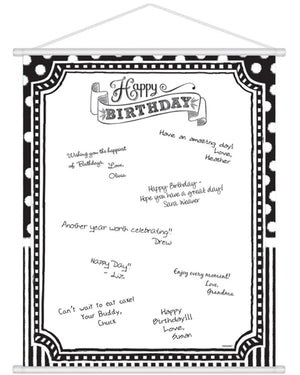 Happy
BIRTHDAY
Have an amazing day!
Love,
Heather
Wishing you the happiest
of Birthdays
Love,
Olivia
Happy Birthday-
Hope you have a great day!
Sara Weaver
Another year worth celebrating"
Drew
"Happy Day"
- Liz
Enjoy every moment!
Love,
Grandma
Can't wait to eat cake!
Your Buddy,
Chuck
Happy
Birthday!!!
Love,
Simon